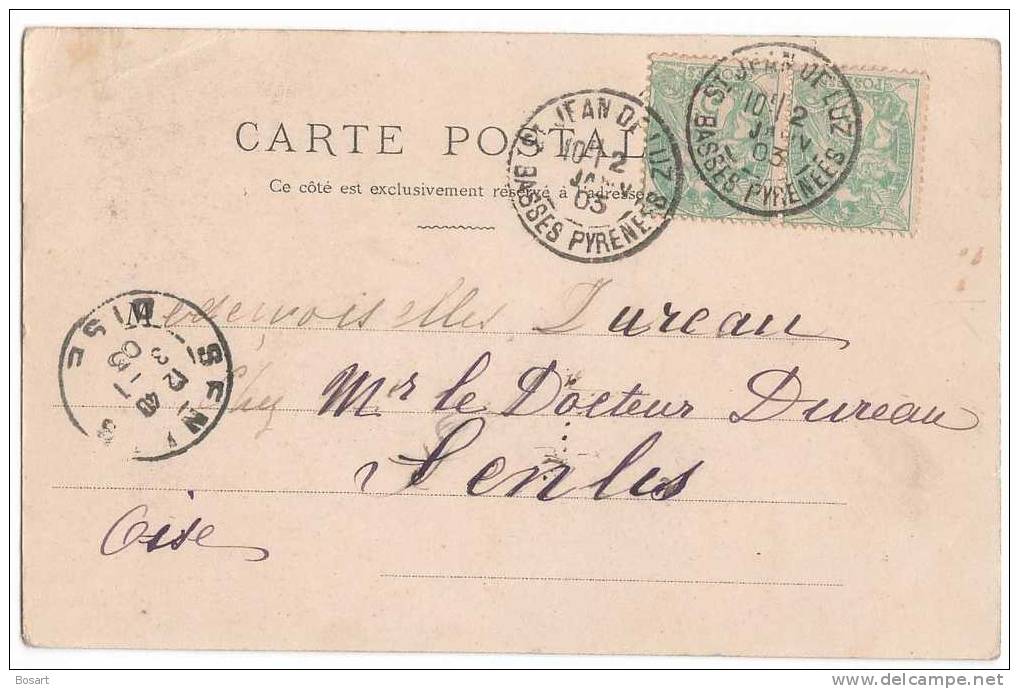 CARTE POSTALE
Ce côté est exclusivement réservé à l'adresse
ST JEAN DE LUZ
10H 2
JANV.
03
BASSES PYRENEES
ST JEAN DE LUZ
10H 2
JANV.
03
BASSES PYRENEES
Mademoiselles Dureau
Chez Mr le Docteur Dureau
Senlis
Oise
SENLIS
OISE
Bosart
www.delcampe.net